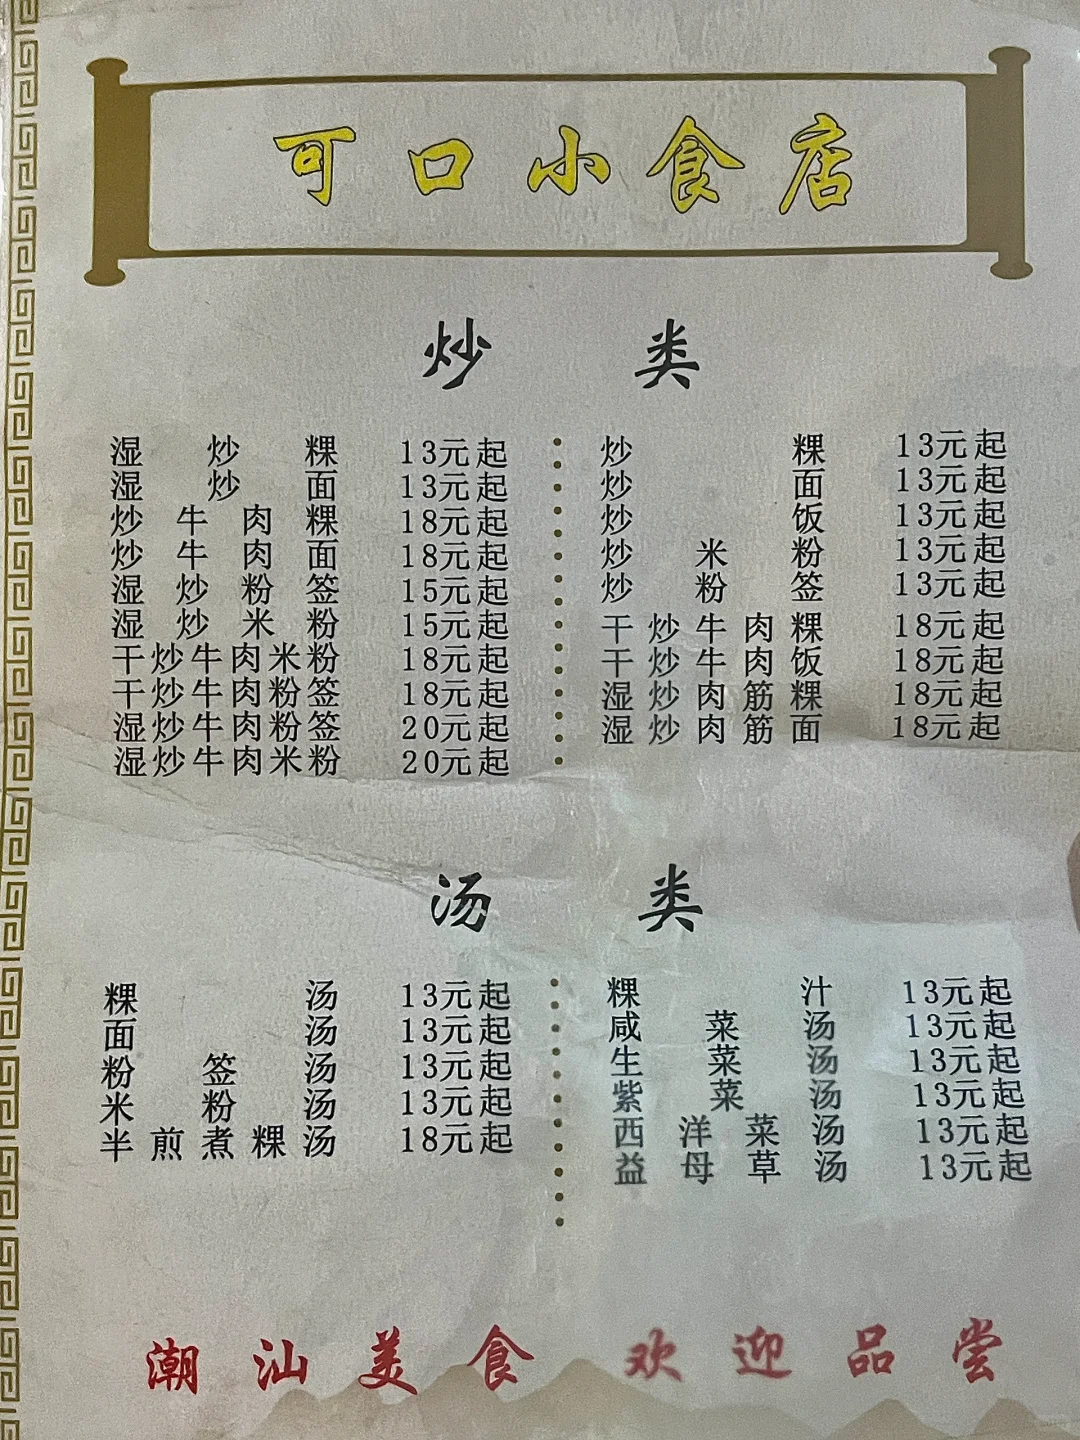 可口小食店
炒类
湿炒粿 13元起
湿炒面 13元起
炒牛肉粿 18元起
炒牛肉面 18元起
湿炒粉签 15元起
湿炒米粉 15元起
干炒牛肉米粉 18元起
干炒牛肉粉签 18元起
湿炒牛肉粉签 20元起
湿炒牛肉米粉 20元起
炒粿 13元起
炒面 13元起
炒饭 13元起
炒米粉 13元起
炒粉签 13元起
干炒牛肉粿 18元起
干炒牛肉饭 18元起
湿炒肉筋粿 18元起
湿炒肉筋面 18元起
汤类
粿汤 13元起
面汤 13元起
粉签汤 13元起
米粉汤 13元起
半煎煮粿汤 18元起
粿汁 13元起
咸菜汤 13元起
生菜汤 13元起
紫菜汤 13元起
西洋菜汤 13元起
益母草汤 13元起
潮汕美食 欢迎品尝